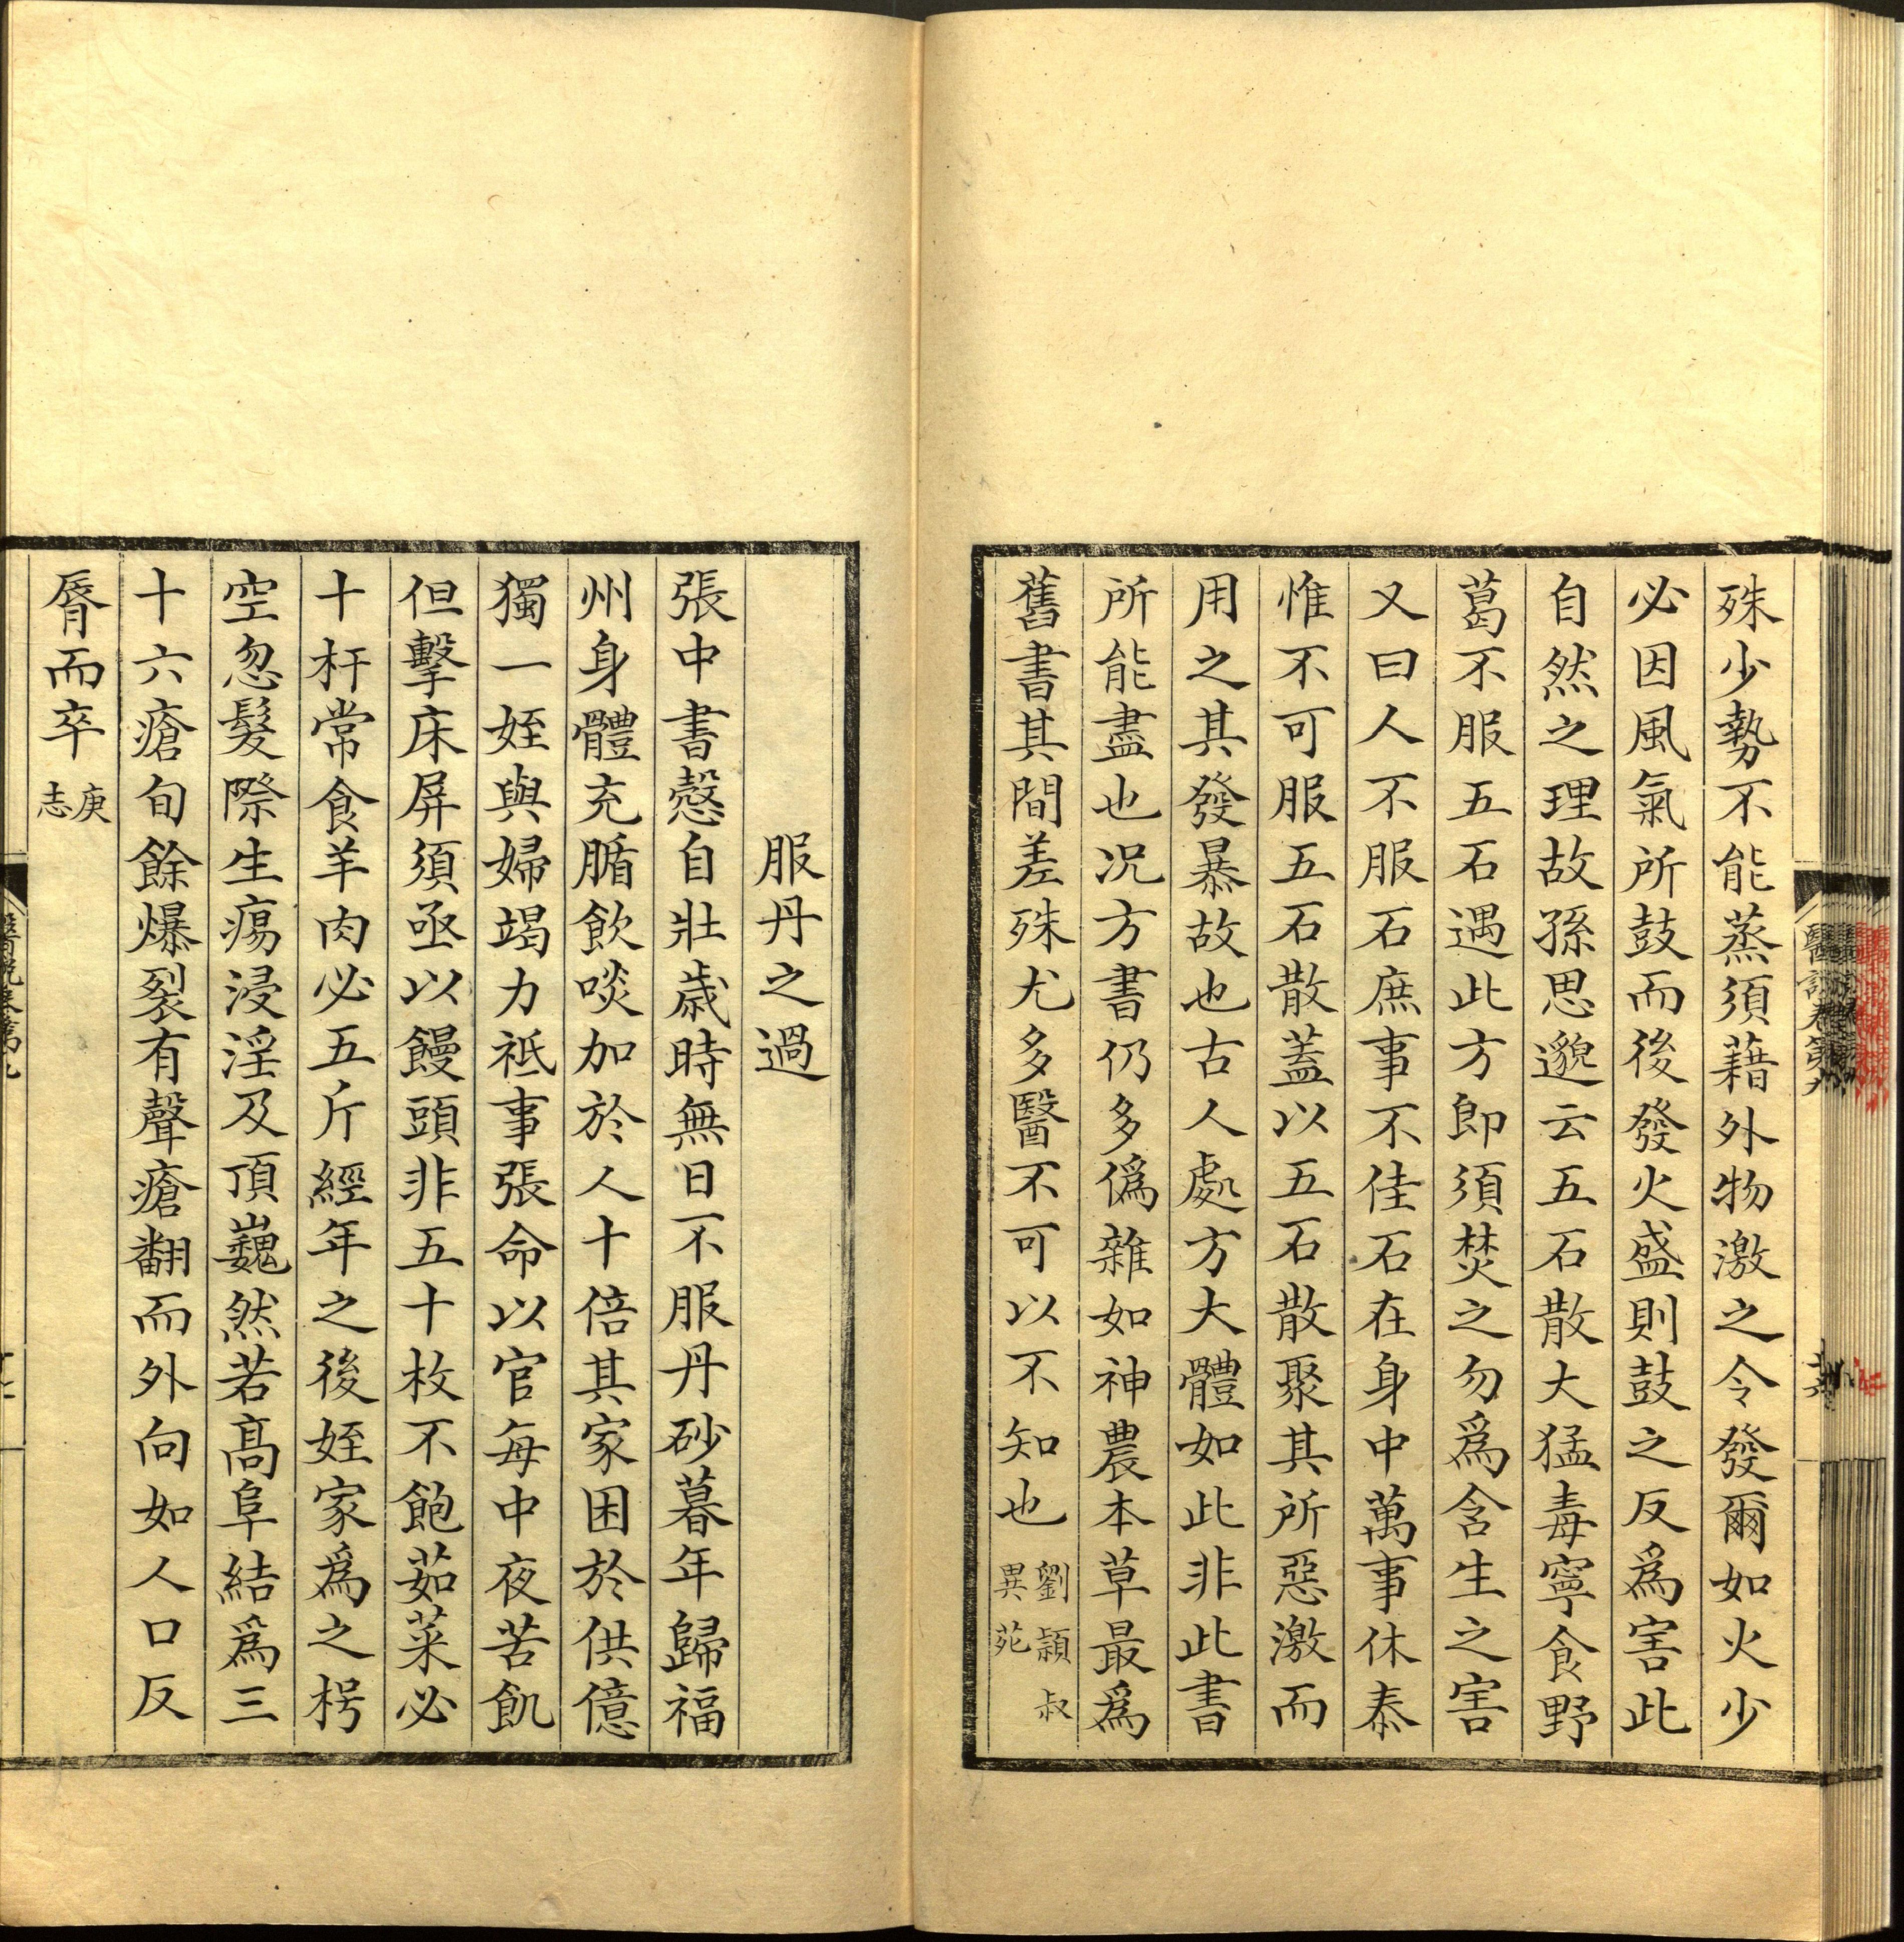 殊少勢不能蒸須藉外物激之令發爾如火少
必因風氣所鼓而後發火盛則鼓之反爲害此
自然之理故孫思邈云五石散大猛毒寧食野
葛不服五石遇此方即須焚之勿爲含生之害
又曰人不服石庶事不佳石在身中萬事休泰
惟不可服五石散蓋以五石散聚其所惡激而
用之其發暴故也古人處方大體如此非此書
所能盡也况方書仍多僞雜如神農本草最爲
舊書其間差殊尤多醫不可以不知也劉頴叔異苑
服丹之過
張中書愨自壯歲時無日不服丹砂暮年歸福
州身體充腯飲啖加於人十倍其家困於供億
獨一姪與婦竭力祗事張命以官每中夜苦飢
但擊床屏須亟以饅頭非五十枚不飽茹菜必
十杅常食羊肉必五斤經年之後姪家爲之枵
空忽髮際生瘍浸淫及頂巍然若髙阜結爲三
十六瘡旬餘爆裂有聲瘡翻而外向如人口反
脣而卒庚志